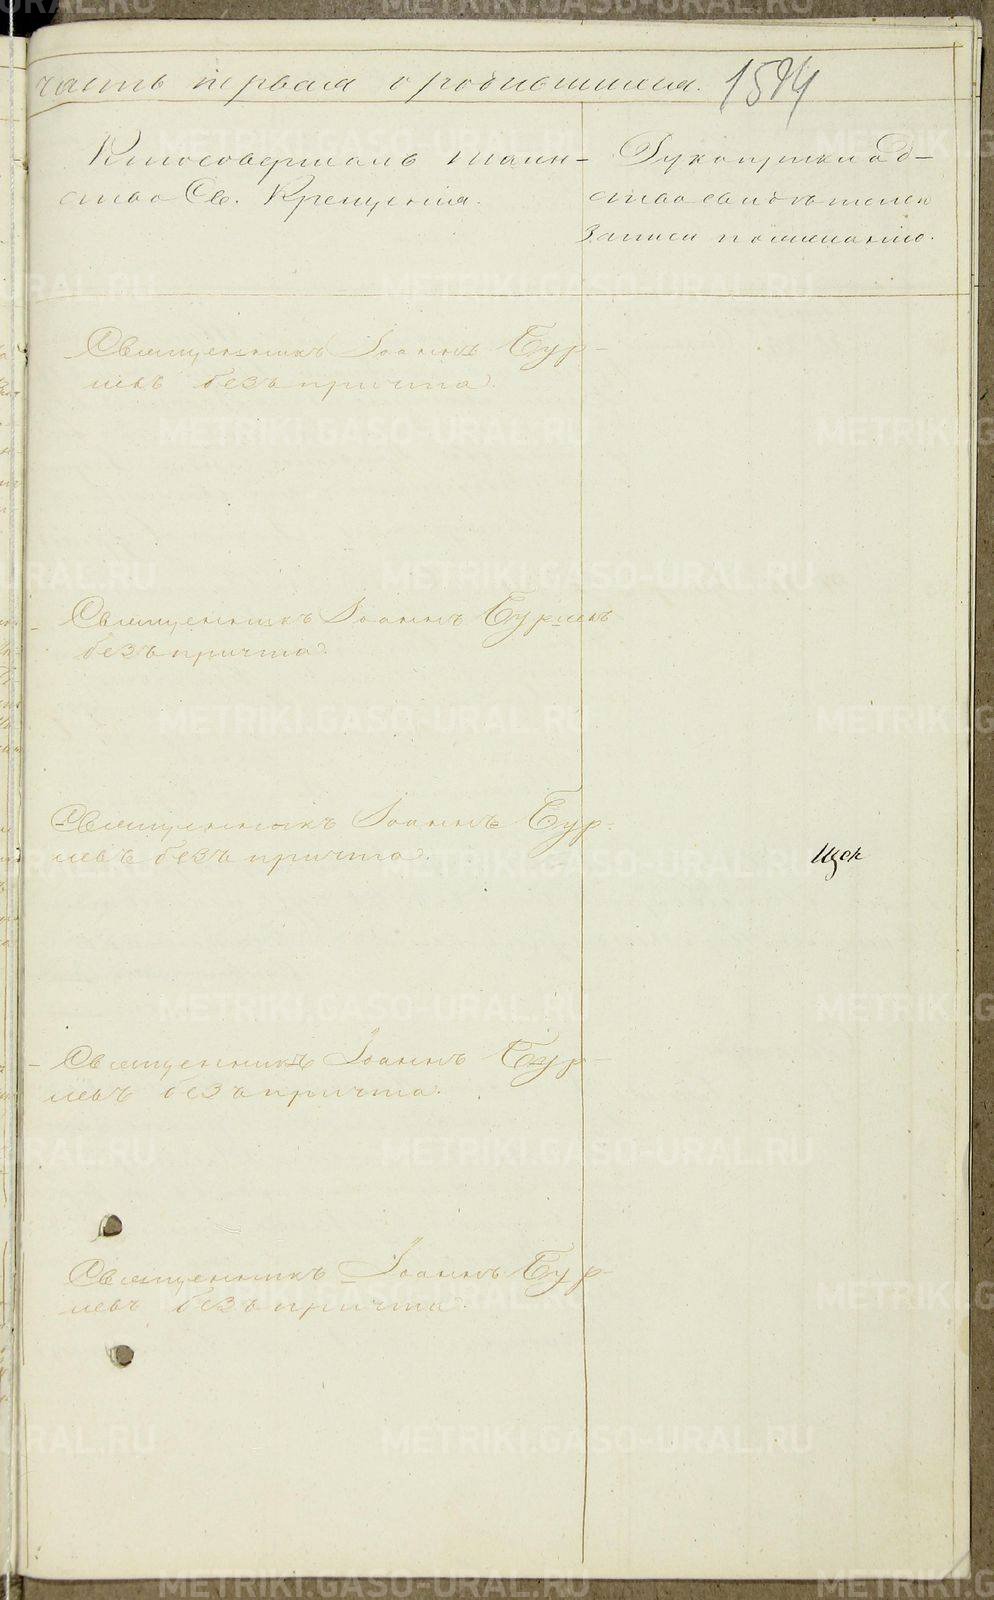 часть первая о родившихся. 1584
Кто совершалъ таин-
ство Св. Крещенія.
Рукоприклад-
ство свидѣтелей
записи по желанію.
Священникъ Іоаннъ Бур-
безъ причта.
Священникъ Іоаннъ
безъ причта.
Священникъ Іоаннъ Бур-
безъ причта.
Священникъ Іоаннъ Бур-
безъ причта.
Священникъ Іоаннъ Бур-
безъ причта.
METRIKI.GASO-URAL.RU